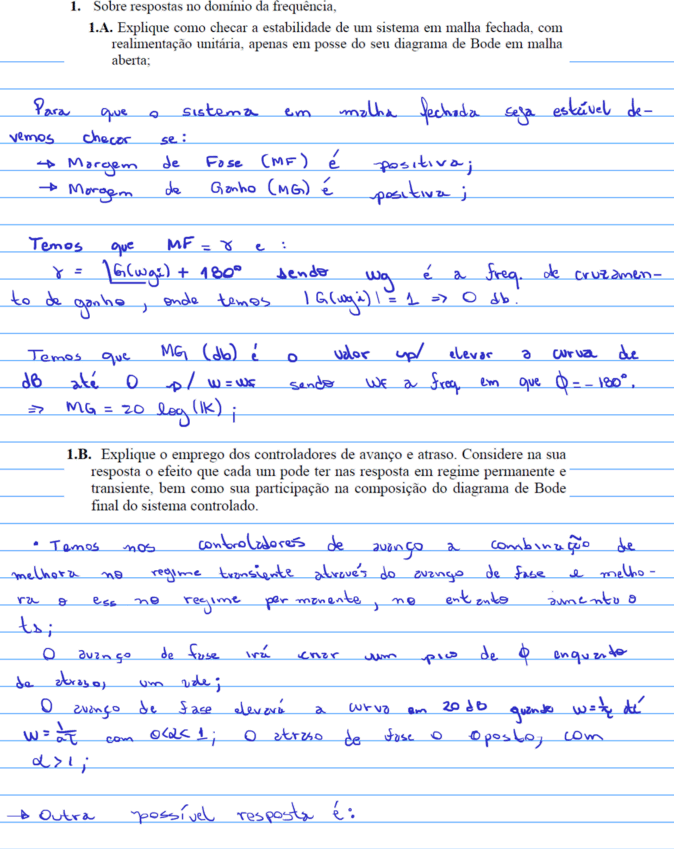 1. Sobre respostas no domínio da frequência,
1.A. Explique como checar a estabilidade de um sistema em malha fechada, com
realimentação unitária, apenas em posse do seu diagrama de Bode em malha
aberta;
Para que o sistema em malha fechada seja estável de-
vemos checar se:
→ Margem de Fase (MF) é positiva;
→ Margem de Ganho (MG) é positiva;
Temos que MF = γ e :
γ = ∠G(wgi) + 180° sendo wg é a freq. de cruzamen-
to de ganho, onde temos |G(wgi)| = 1 => 0 db.
Temos que MG (db) é o valor p/ elevar a curva de
dB até 0 p/ w = wF sendo wF a freq em que ϕ = -180°.
=> MG = 20 log(|K);
1.B. Explique o emprego dos controladores de avanço e atraso. Considere na sua
resposta o efeito que cada um pode ter nas resposta em regime permanente e
transiente, bem como sua participação na composição do diagrama de Bode
final do sistema controlado.
• Temos nos controladores de avanço a combinação de
melhora no regime transiente através do avanço de fase e melho-
ra o ess no regime permanente, no entanto aumenta o
ts;
O avanço de fase irá criar um pico de ϕ enquanto
de atraso, um vale;
O avanço de fase elevará a curva em 20 db quando w = 1/τ até
w = 1/aτ com 0<α<1; O atraso de fase o oposto, com
α>1;
→ Outra possível resposta é: